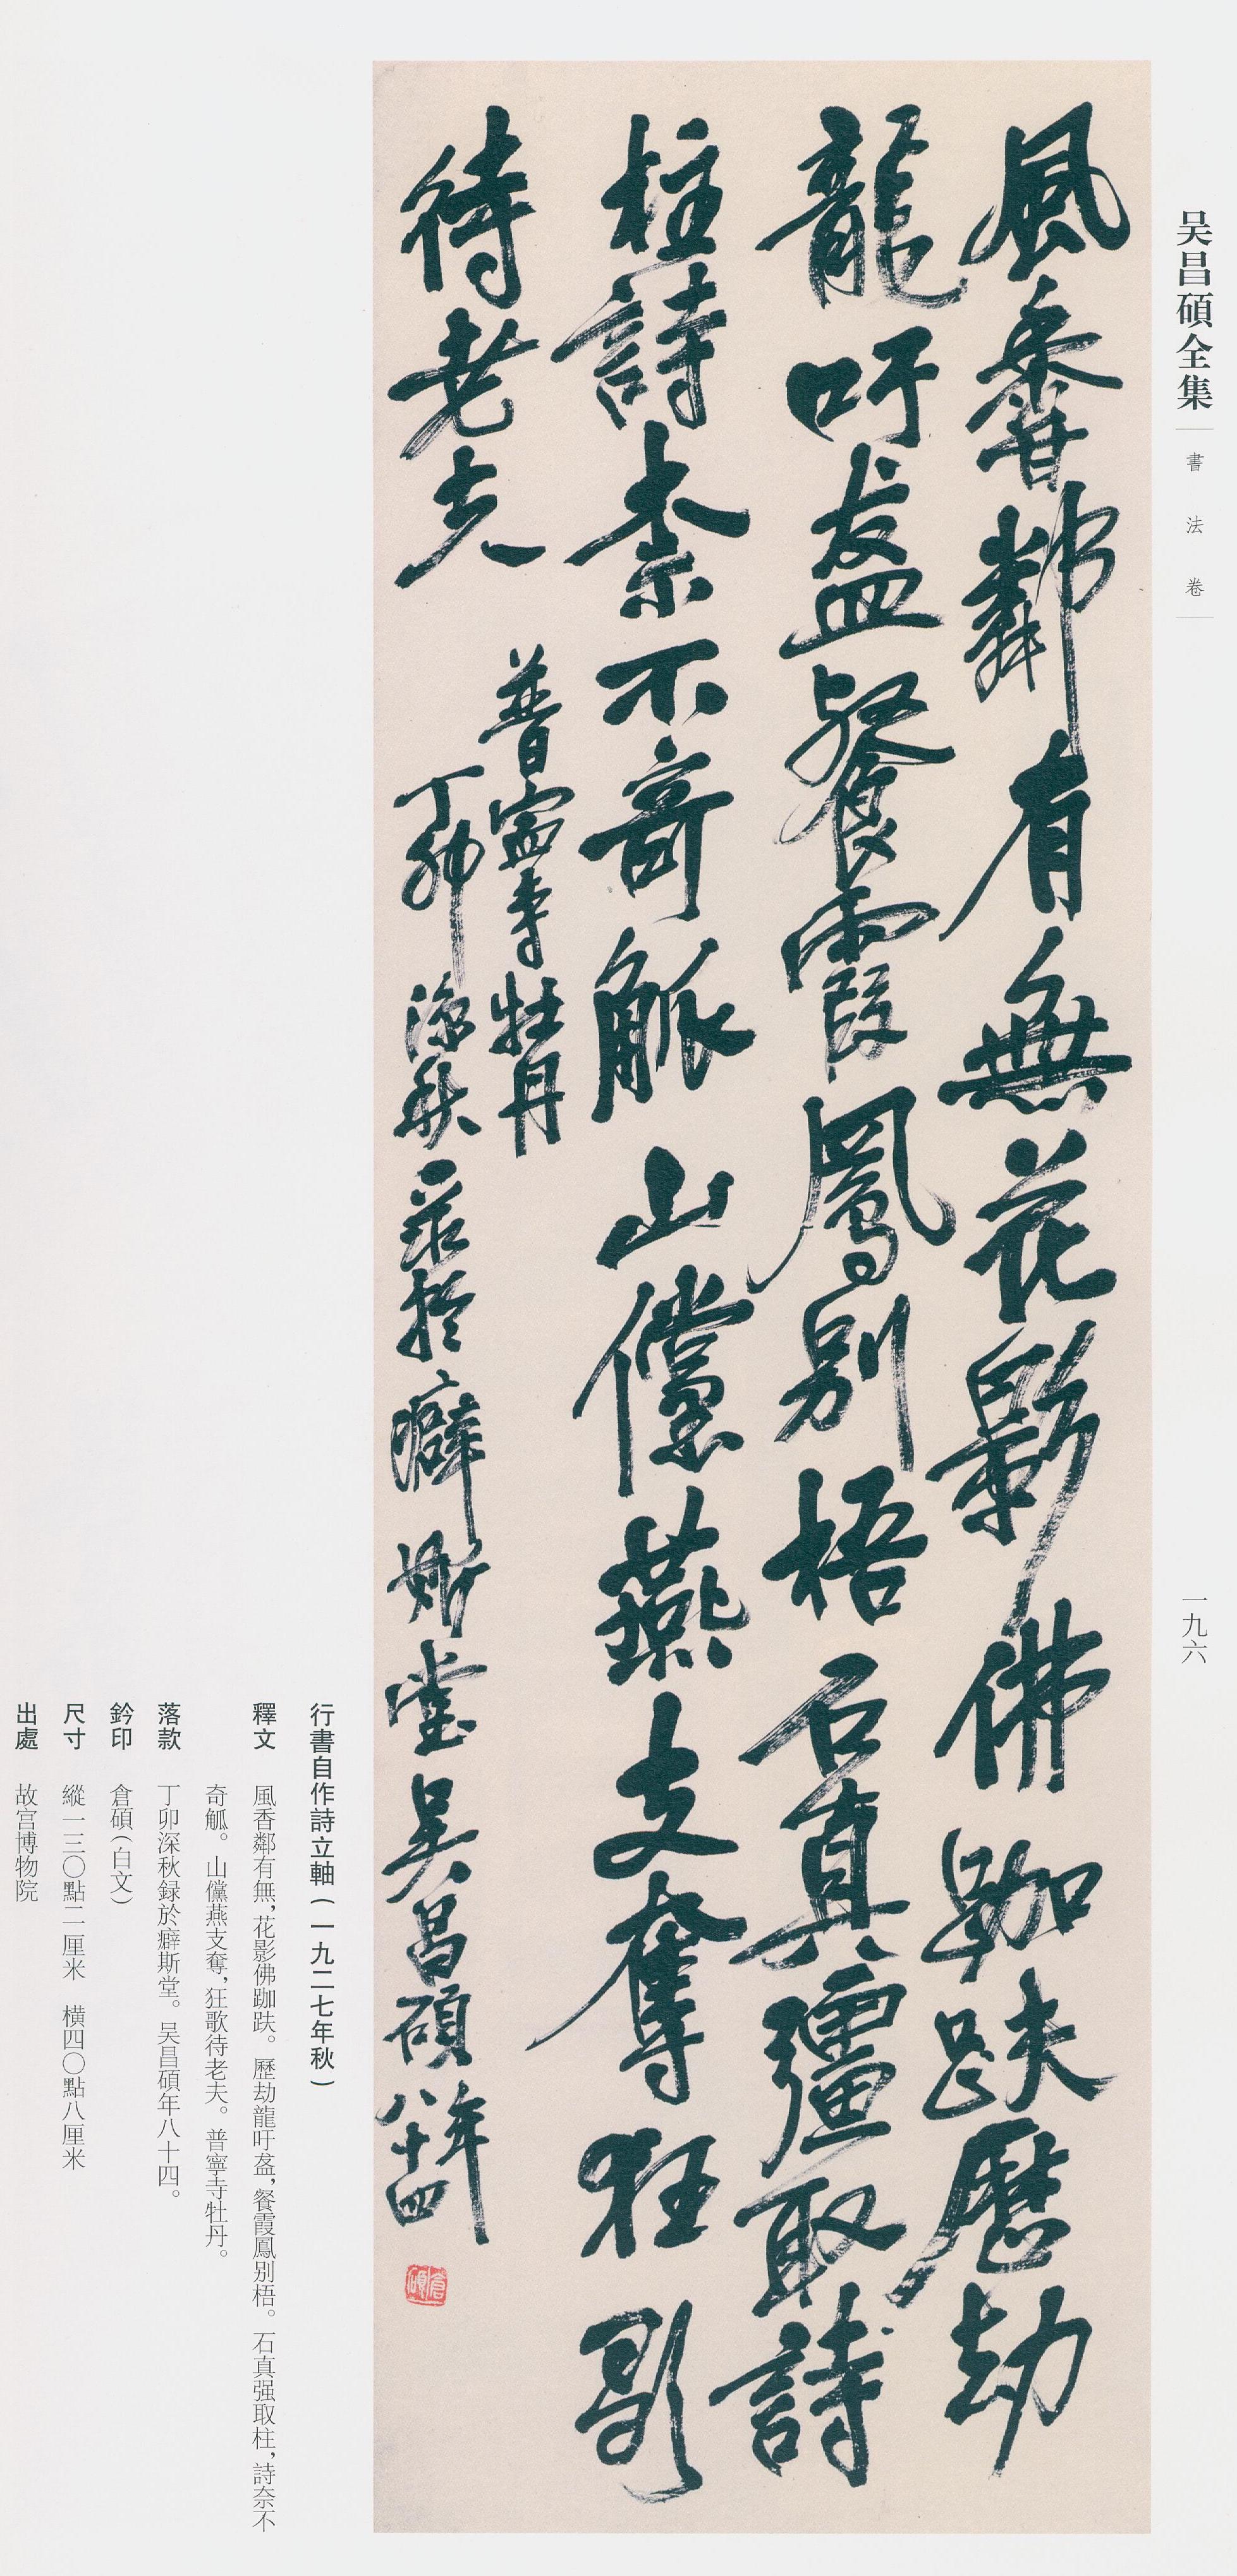 吴昌碩全集
書法卷
一九六
風香鄰有無花影佛跏趺歷劫
龍吁盍餐霞鳳别梧石真彊取詩
柱詩柰不奇觚山儻燕支奪狂歌
待老夫
普寍寺牡丹
丁卯深秋录於癖斯堂吴昌碩年八十四
倉碩
行書自作詩立軸（一九二七年秋）
釋文 風香鄰有無，花影佛跏趺。歷劫龍吁盍，餐霞鳳别梧。石真强取柱，詩奈不
奇觚。山儻燕支奪，狂歌待老夫。普寧寺牡丹。
落款 丁卯深秋録於癖斯堂。吴昌碩年八十四。
鈐印 倉碩（白文）
尺寸 縱一三〇點二厘米 橫四〇點八厘米
出處 故宫博物院